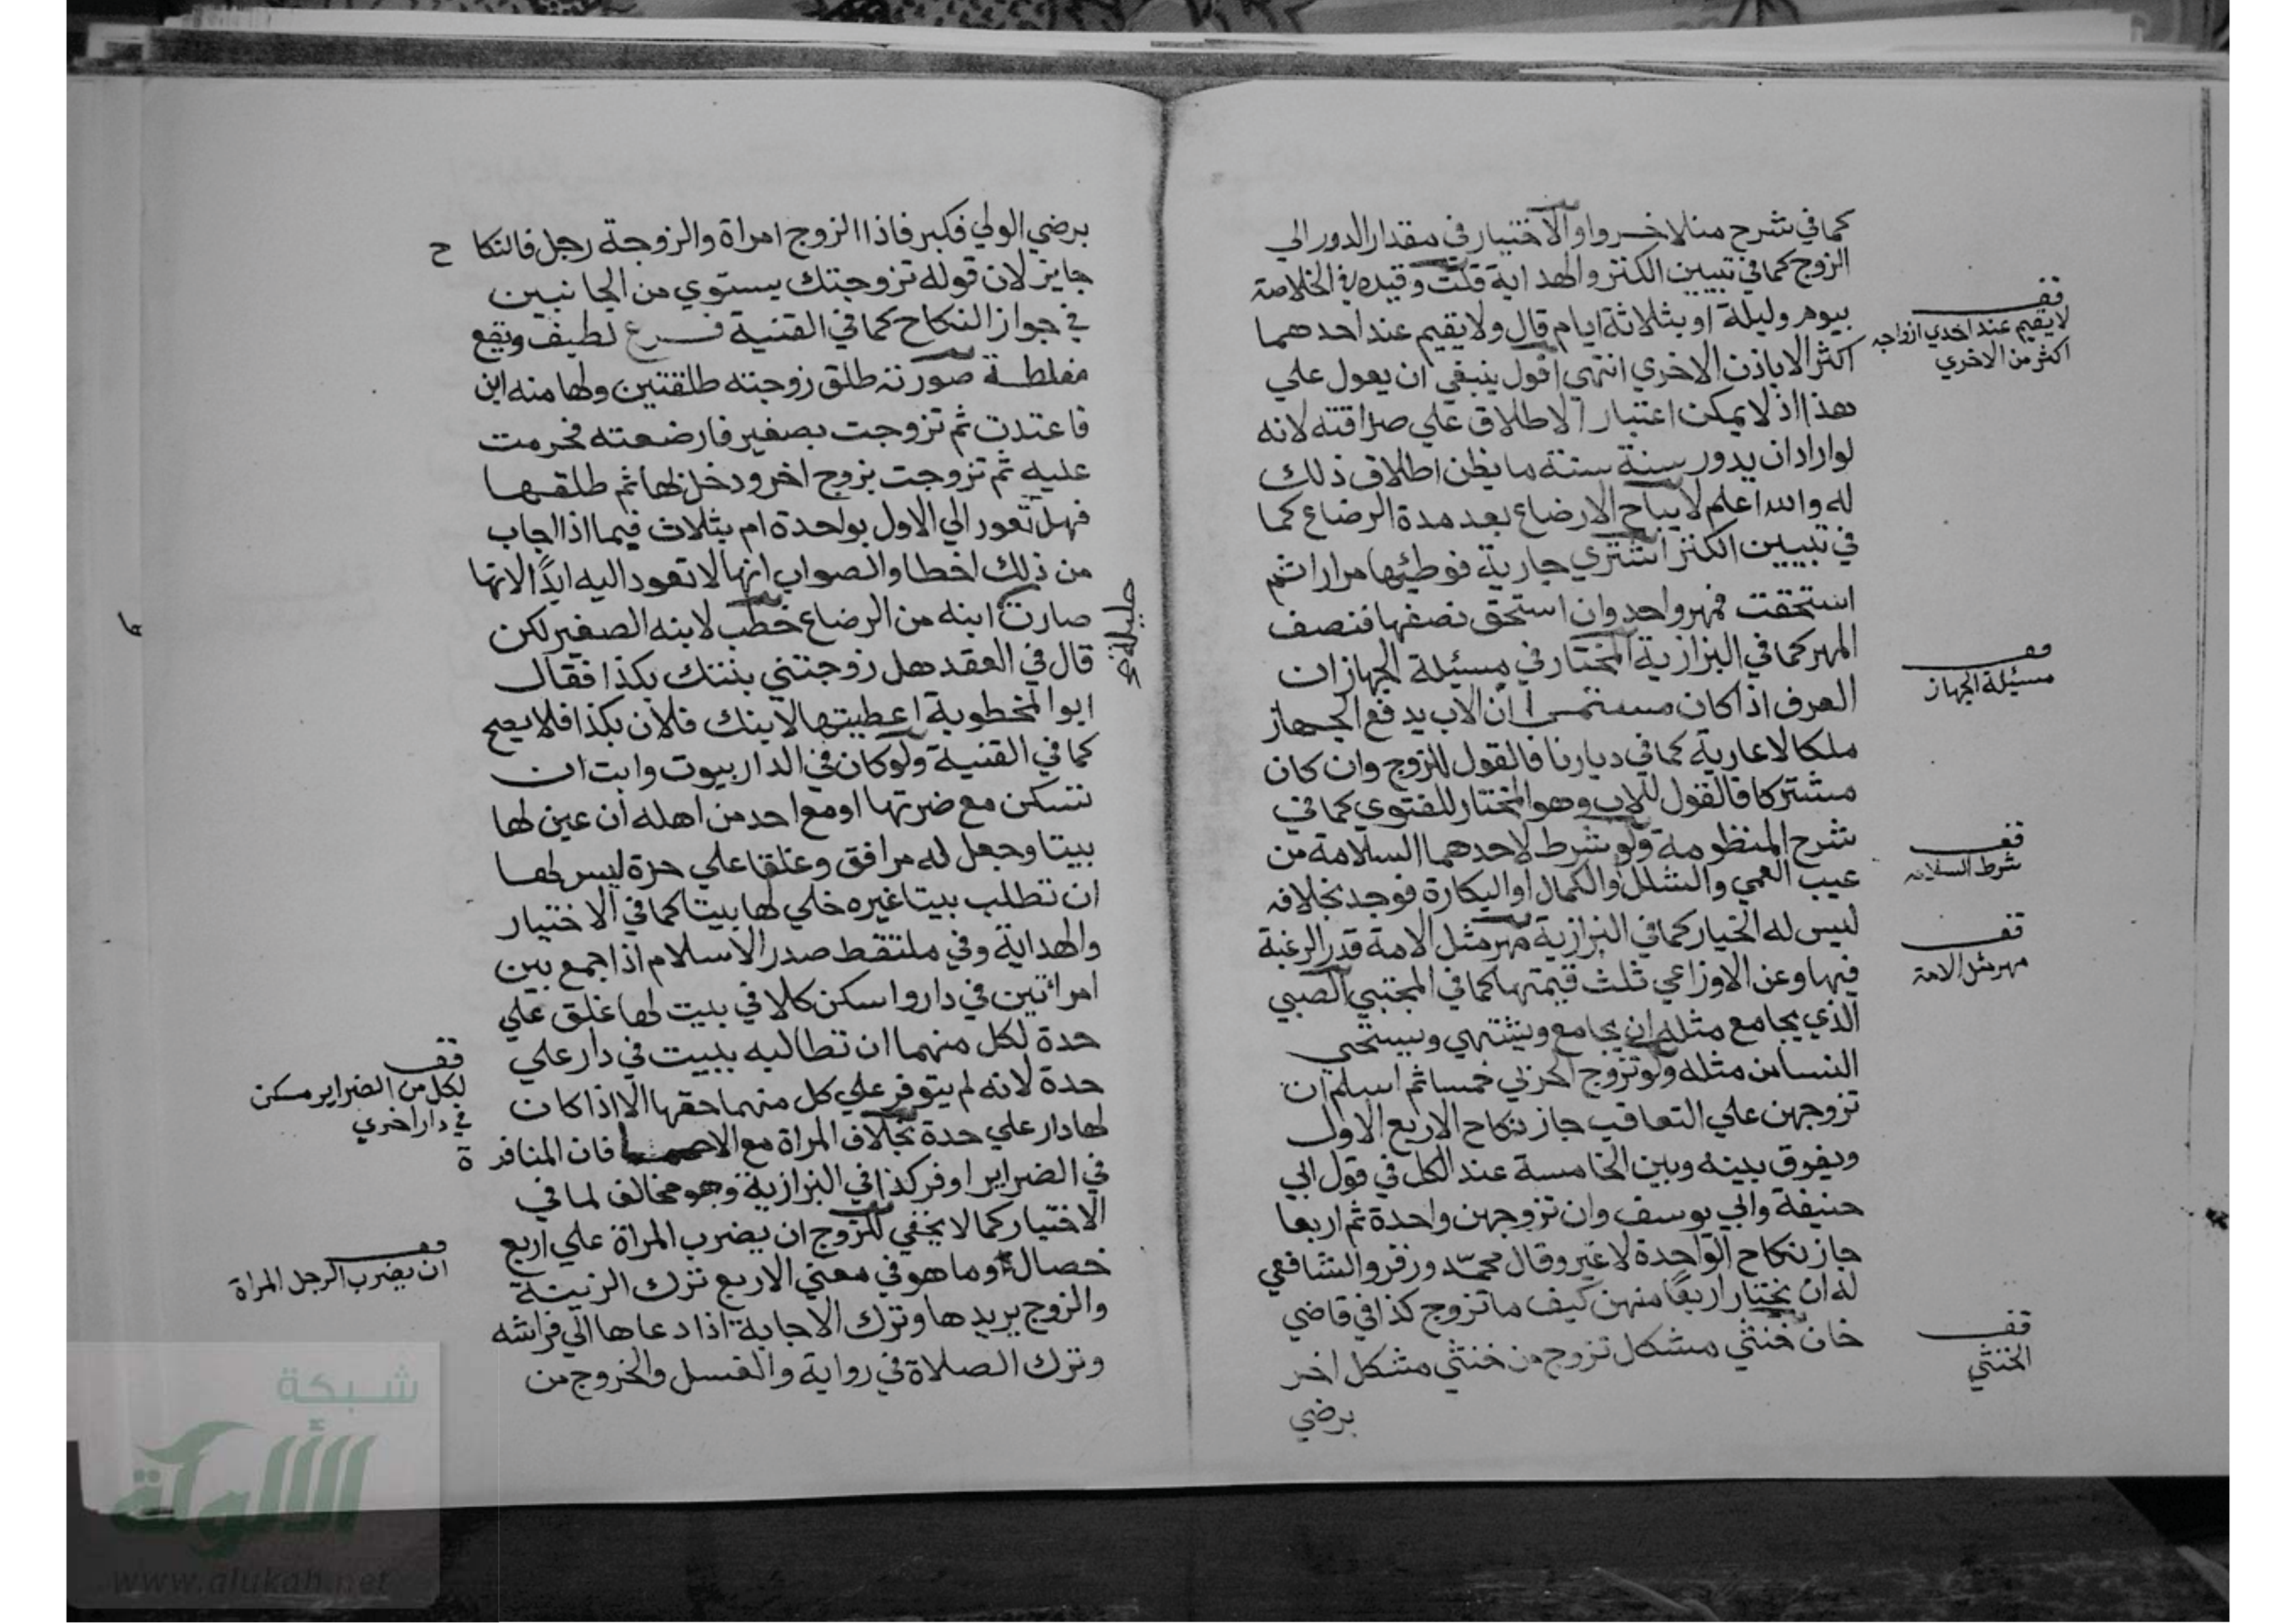 كما في شرح منلاخسرو او الاختيار في مقدار الدور الي
الزوج كما في تبيين الكنز والهداية قلت وقيده في الخلاصة
بيوم وليلة او بثلاثة ايام قال ولا يقيم عند احدهما
اكثر الا باذن الاخري انتهي اقول ينبغي ان يعول علي
هذا اذ لا يمكن اعتبار الاطلاق علي صرافته لانه
لو اراد ان يدور سنة سنة ما يظن اطلاق ذلك
له والله اعلم لا يباح الارضاع بعد مدة الرضاع كما
في تبيين الكنز اشتري جارية فوطئها مرارا ثم
استحقت فمهر واحد وان استحق نصفها فنصف
المهر كما في البزازية المختار في مسئيلة الجهاز ان
العرف اذا كان مستمرا ان الاب يدفع الجهاز
ملكا لا عارية كما في ديارنا فالقول للزوج وان كان
مشتركا فالقول للاب وهو المختار للفتوي كما في
شرح المنظومة ولو شرط لاحدهما السلامة من
عيب العمي والشلل والكمال او البكارة فوجد بخلافه
ليس له الخيار كما في البزازية مهر مثل الامة قدر الرغبة
فيها وعن الاوزاعي ثلث قيمتها كما في المجتبي الصبي
الذي يجامع مثله ان يجامع ويشتهي ويستحي
النسا من مثله ولو تزوج الحربي خمسا ثم اسلم ان
تزوجهن علي التعاقب جاز نكاح الاربع الاول
ويفرق بينه وبين الخامسة عند الكل في قول ابي
حنيفة وابي يوسف وان تزوجهن واحدة ثم اربعا
جاز نكاح الواحدة لا غير وقال محمد وزفر والشافعي
له ان يختار اربعا منهن كيف ما تزوج كذا في قاضي
خان خنثي مشكل تزوج من خنثي مشكل اخر
برضي
قف
لا يقيم عند احدي ازواجه
اكثر من الاخري
قف
مسئيلة الجهاز
قف
شرط السلامه
قف
مهر مثل الامة
قف
الخنثي
برضي الولي فكبر فاذا الزوج امراة والزوجة رجل فالنكا ح
جايز لان قوله تزوجتك يستوي من الجانبين
في جواز النكاح كما في القنية فرع لطيف وتقع
مغلطة صورته طلق زوجته طلقتين ولها منه ابن
فاعتدت ثم تزوجت بصغير فارضعته فحرمت
عليه ثم تزوجت بزوج اخر ودخل لها ثم طلقها
فهل تعود الي الاول بواحدة ام بثلاث فيما اذا اجاب
من ذلك اخطا والصواب انها لا تعود اليه ابدًا لانها
صارت ابنه من الرضاع خطب لابنه الصغير لكن
قال في العقد هل زوجتني بنتك بكذا فقال
ابو المخطوبة اعطيتها لابنك فلان بكذا فلا يصح
كما في القنية ولو كان في الدار بيوت وابت ان
تسكن مع ضرتها او مع احد من اهله ان عين لها
بيتا وجعل له مرافق وغلقا علي حدة ليس لها
ان تطلب بيتا غيره خلي لها بيتا كما في الاختيار
والهداية وفي ملتقط صدر الاسلام اذا جمع بين
امراتين في دار واسكن كالا في بيت لها غلق علي
حدة لكل منهما ان تطالبه ببيت في دار علي
حدة لانه لم يتوفر علي كل منهما حقها الا اذا كان
لها دار علي حدة بخلاف المراة مع الاحما فان المنافر ة
في الضراير اوفر كذا في البزازية وهو مخالف لما في
الاختيار كما لا يخفي للزوج ان يضرب المراة علي اربع
خصال وما هو في معني الاربع ترك الزينة
والزوج يريدها وترك الاجابة اذا دعاها الي فراشه
وترك الصلاة في رواية والغسل والخروج من
قف
لكل من الضراير مسكن
في دار اخري
قف
ان يضرب الرجل المراة
شبكة
الألوكة
www.alukah.net